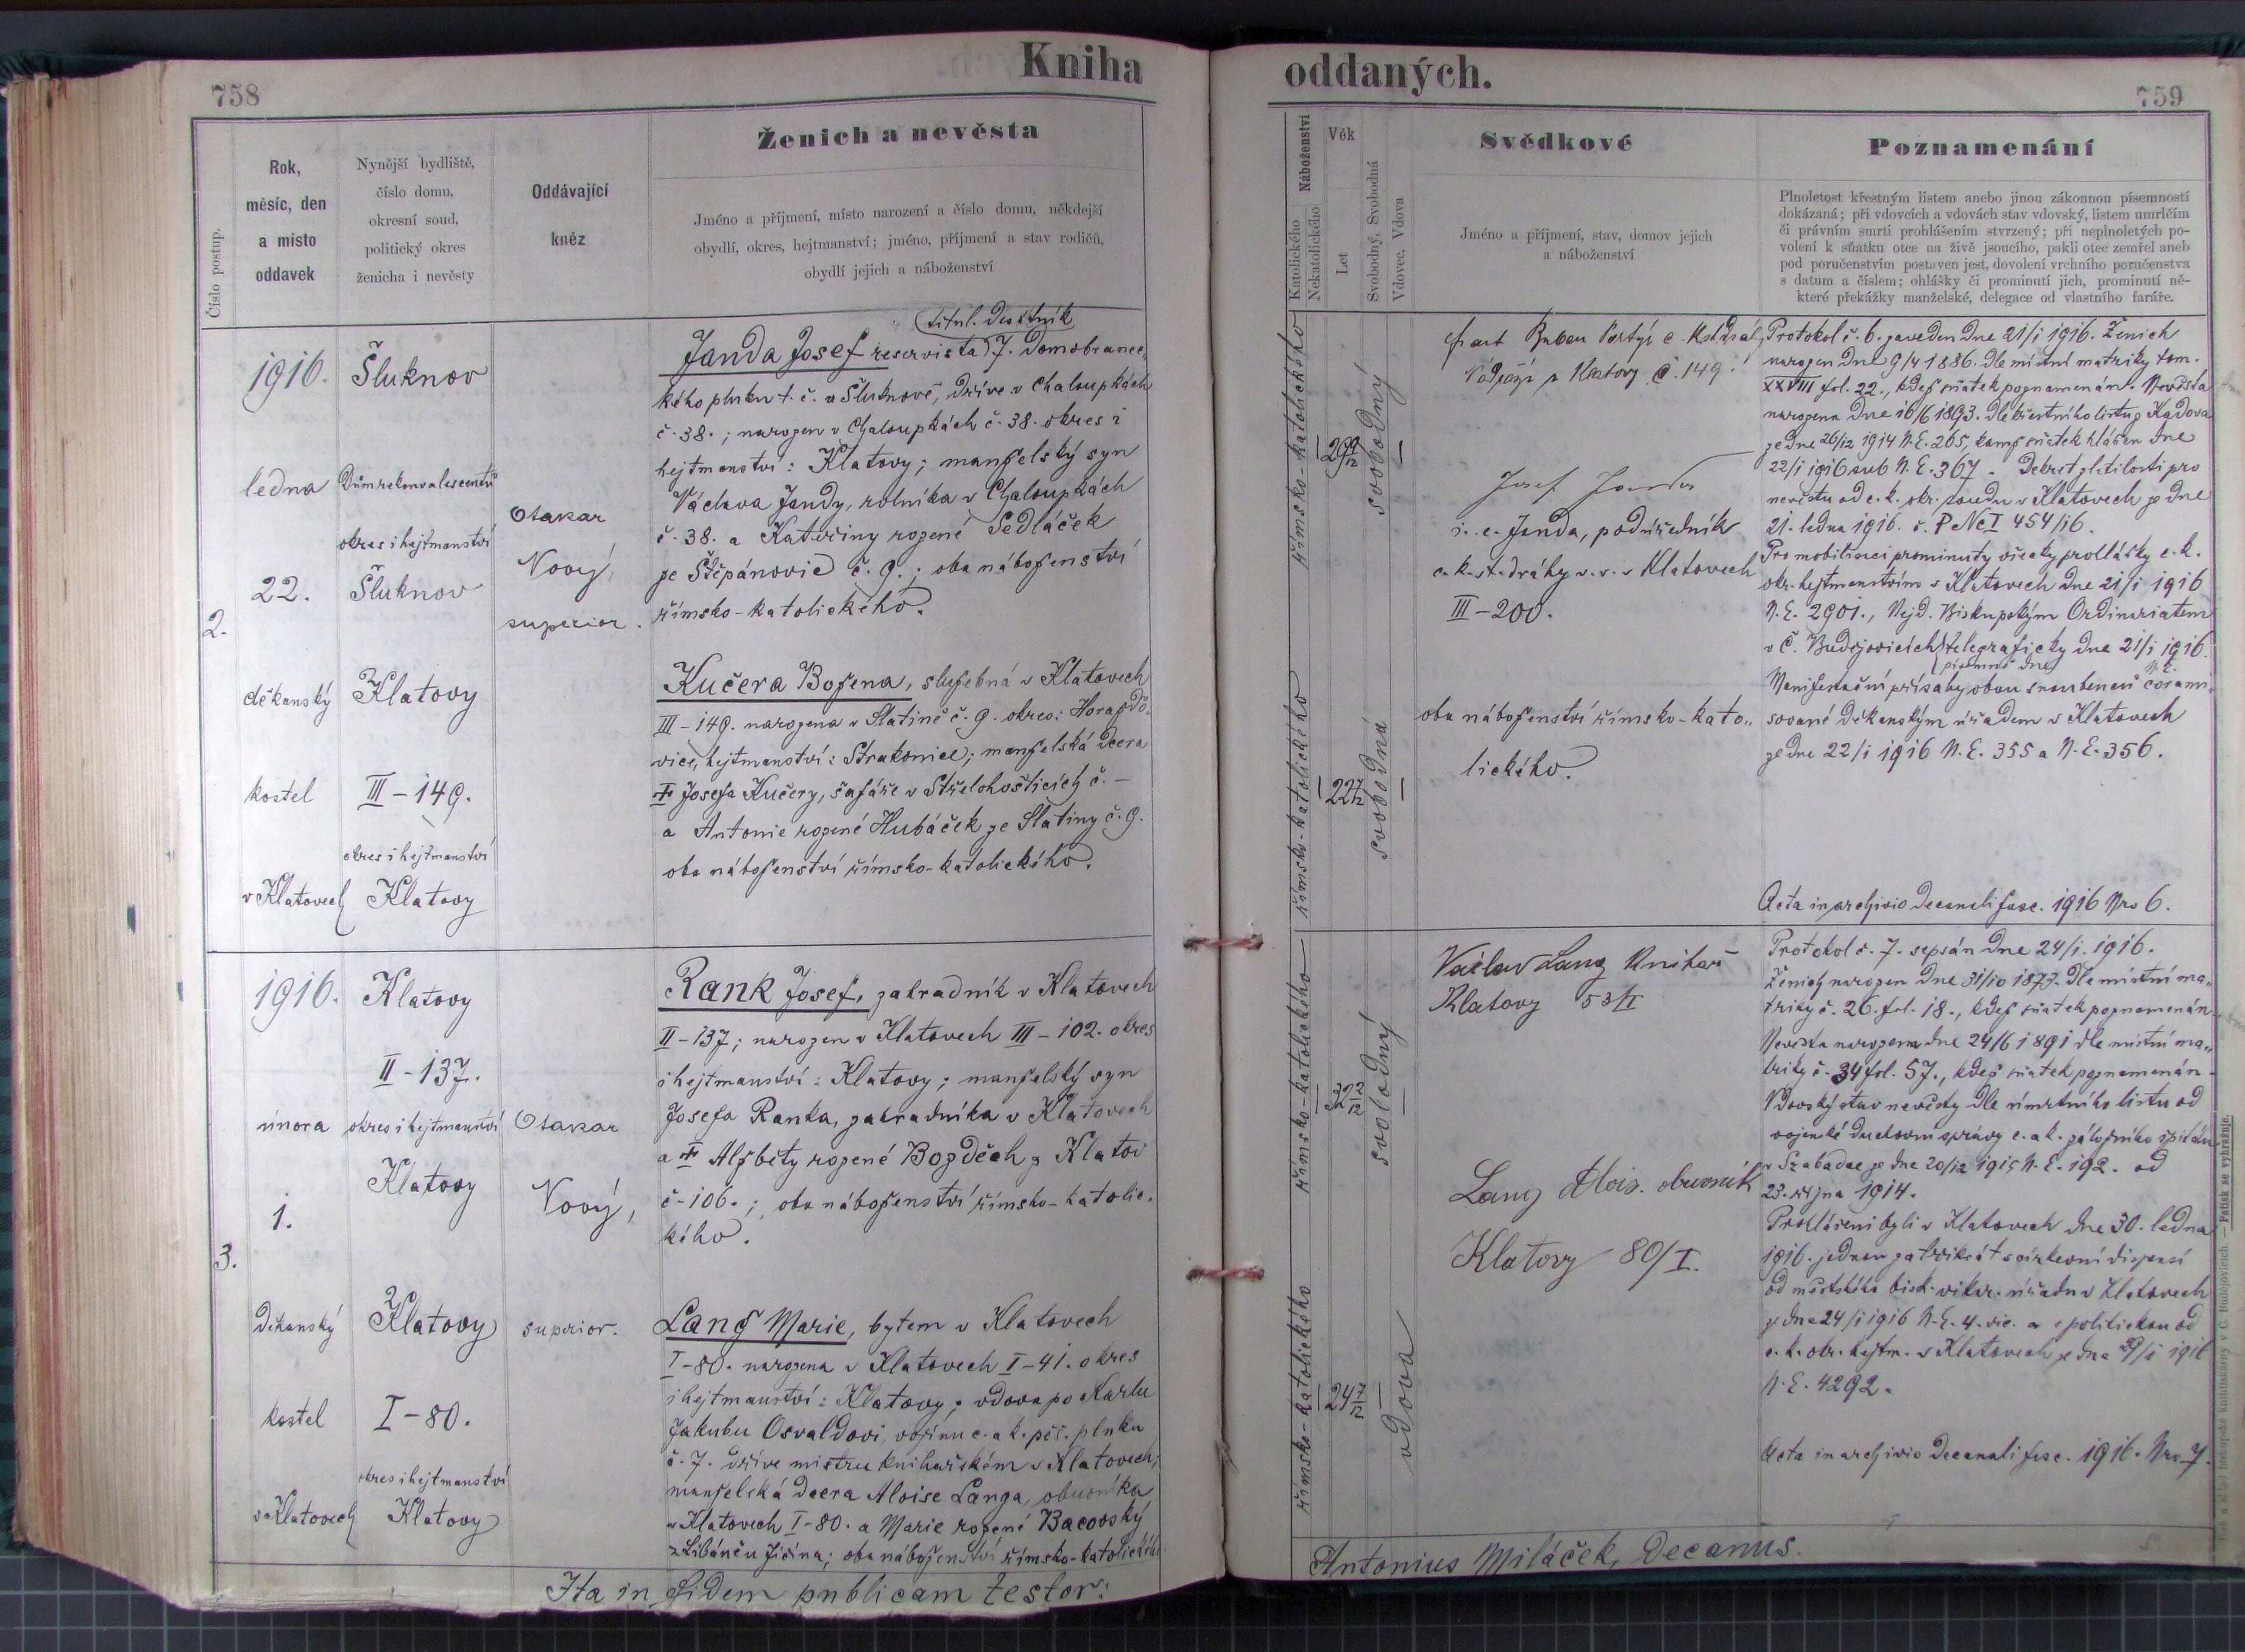 758
Kniha
Číslo postup.
Rok,
měsíc, den
a místo
oddavek
Nynější bydliště,
číslo domu,
okresní soud,
politický okres
ženicha i nevěsty
Oddávající
kněz
Ženich a nevěsta
Jméno a příjmení, místo narození a číslo domu, někdejší
obydlí, okres, hejtmanství; jméno, příjmení a stav rodičů,
obydlí jejich a náboženství
2.
1916.
ledna
22.
děkanský
kostel
v Klatovech
Šluknov
Dům rekonvalescentů
okres i hejtmanství
Šluknov
Klatovy
III-149.
okres i hejtmanství
Klatovy
Otakar
Nový,
superior.
titul. desátník
Janda Josef reservista 7. domobranec-
kého pluku t. č. v Šluknově, dříve v Chaloupkách
č. 38.; narozen v Chaloupkách č. 38. okres i
hejtmanství: Klatovy; manželský syn
Václava Jandy, rolníka v Chaloupkách
č. 38. a Kateřiny rozené Sedláček
ze Štěpánovic č. 9.; oba náboženství
římsko-katolického.
Kučera Božena, služebná v Klatovech
III-149. narozena v Slatině č. 9. okres: Horažďo-
vice, hejtmanství: Strakonice; manželská dcera
† Josefa Kučery, šafáře v Střelohošticích č. –
a Antonie rozené Hubáček ze Slatiny č. 9.
oba náboženství římsko-katolického.
3.
1916.
února
1.
Děkanský
kostel
v Klatovech
Klatovy
II-137.
okres i hejtmanství
Klatovy
Klatovy
I-80.
okres i hejtmanství
Klatovy
Otakar
Nový,
superior.
Rank Josef, zahradník v Klatovech
II-137; narozen v Klatovech III-102. okres
i hejtmanství: Klatovy; manželský syn
Josefa Ranka, zahradníka v Klatovech
a † Alžběty rozené Bozděch z Klatov
č. 106.; oba náboženství římsko-katolic-
kého.
Lang Marie, bytem v Klatovech
I-80. narozena v Klatovech I-41. okres
i hejtmanství: Klatovy; vdova po Karlu
Jakubu Osvaldovi, vojínu c. a k. pěš. pluku
č. 7. dříve mistru knihařském v Klatovech,
manželská dcera Aloise Langa, obuvníka
v Klatovech I-80. a Marie rozené Bacovský
z Libáněu Jičína; oba náboženství římsko-katolického.
Ita in fidem publicam testor:
oddaných.
759
Náboženství
Katolického
Nekatolického
Věk
Let
Svobodný, Svobodná
Vdovec, Vdova
Svědkové
Jméno a příjmení, stav, domov jejich
a náboženství
Poznamenání
Plnoletost křestným listem anebo jinou zákonnou písemností
dokázaná; při vdovcích a vdovách stav vdovský, listem umrlčím
či právním smrti prohlášením stvrzený; při neplnoletých po-
volení k sňatku otce na živě jsoucího, pakli otec zemřel aneb
pod poručenstvím postaven jest, dovolení vrchního poručenstva
s datum a číslem; ohlášky či prominutí jich, prominutí ně-
které překážky manželské, delegace od vlastního faráře.
římsko-katolického
29 9/12
svobodný
římsko-katolického
22 7/12
svobodná
Klatovy č. 149.
Josef Janda
i. e. Janda, podúředník
c. k. st. dráhy v. v. v Klatovech
III-200.
oba náboženství římsko-kato-
lického.
Protokol č. 6. zaveden dne 21/1 1916. Ženich
narozen dne 9/4 1886. dle místní matriky tom.
XXVIII fol. 22., kdež sňatek poznamenán. Nevěsta
narozena dne 16/6 1893. dle křestního listu z Kadova
ze dne 26/12 1914 N. E. 265, kamž sňatek hlášen dne
22/1 1916 sub N. E. 367. Dekret zletilosti pro
nevěstu od c. k. okr. soudu v Klatovech ze dne
21. ledna 1916. č. P Nc I 454/16.
Pro mobilisaci prominuty všecky prohlášky c. k.
okr. hejtmanstvím v Klatovech dne 21/1 1916
N. E. 2901., Nejd. Biskupským Ordinariatem
v Č. Budějovicích telegraficky dne 21/1 1916.
písemně dne N. E.
Manifestační přísahy obou snoubenců corami-
sované děkanským úřadem v Klatovech
ze dne 22/1 1916 N. E. 355 a N. E. 356.
Acta in archivio decanali fasc. 1916 Nro 6.
římsko-katolického
svobodný
římsko-katolického
24 7/12
vdova
Václav Lang Knihař
Klatovy 53/I
Lang Alois. obuvník
Klatovy 80/I.
Protokol č. 7. sepsán dne 24/1. 1916.
Ženich narozen dne 31/10 1873. dle místní ma-
triky č. 26. fol. 18., kdež sňatek poznamenán.
Nevěsta narozena dne 24/6 1891 dle místní ma-
triky č. 34 fol. 57., kdež sňatek poznamenán.
Vdovský stav nevěsty dle úmrtního listu od
vojenské duchovní správy c. a k. záložního špitálu
v Szabadce ze dne 20/12 1915 N. E. 192. od
23. října 1914.
Prohlášeni byli v Klatovech dne 30. ledna
1916. jednou za třikrát s církevní dispensí
od městského bisk. vikar. úřadu v Klatovech
ze dne 24/1 1916 N. E. 4. vic. a s politickou od
c. k. okr. hejtm. v Klatovech ze dne 29/1 1916
N. E. 4292.
Acta in archivio decanali fasc. 1916. Nro 7.
Antonius Miláček, Decanus.
Tisk a sklad biskupské knihtiskárny v Č. Budějovicích. — Patisk se vyhražuje.